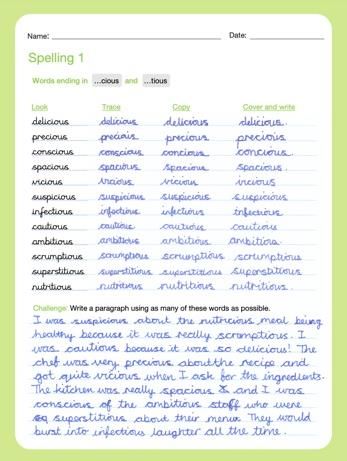 Name: Date:
Spelling 1
Words ending in ...cious and ...tious
Look Trace Copy Cover and write
delicious delicious delicious delicious.
precious precious precious precious
conscious conscious concious concious.
spacious spacious spacious spacious.
vicious vicious vicious vicious
suspicious suspicious suspicious suspicious
infectious infectious infectious infectious
cautious cautious cautious cautious
ambitious ambitious ambitious ambitious.
scrumptious scrumptious scrumptious scrumptious
superstitious superstitious superstitious superstitious
nutritious nutritious nutritious nutritious
Challenge: Write a paragraph using as many of these words as possible.
I was suspicious about the nutricious meal being
healthy because it was really scrumptious. I
was cautious because it was so delicious! The
chef was very precious about the recipe and
got quite vicious when I ask for the ingredients.
The kitchen was really spacious and I was
conscious of the ambitious staff who were
superstitious about their menu. They would
burst into infectious laughter all the time.